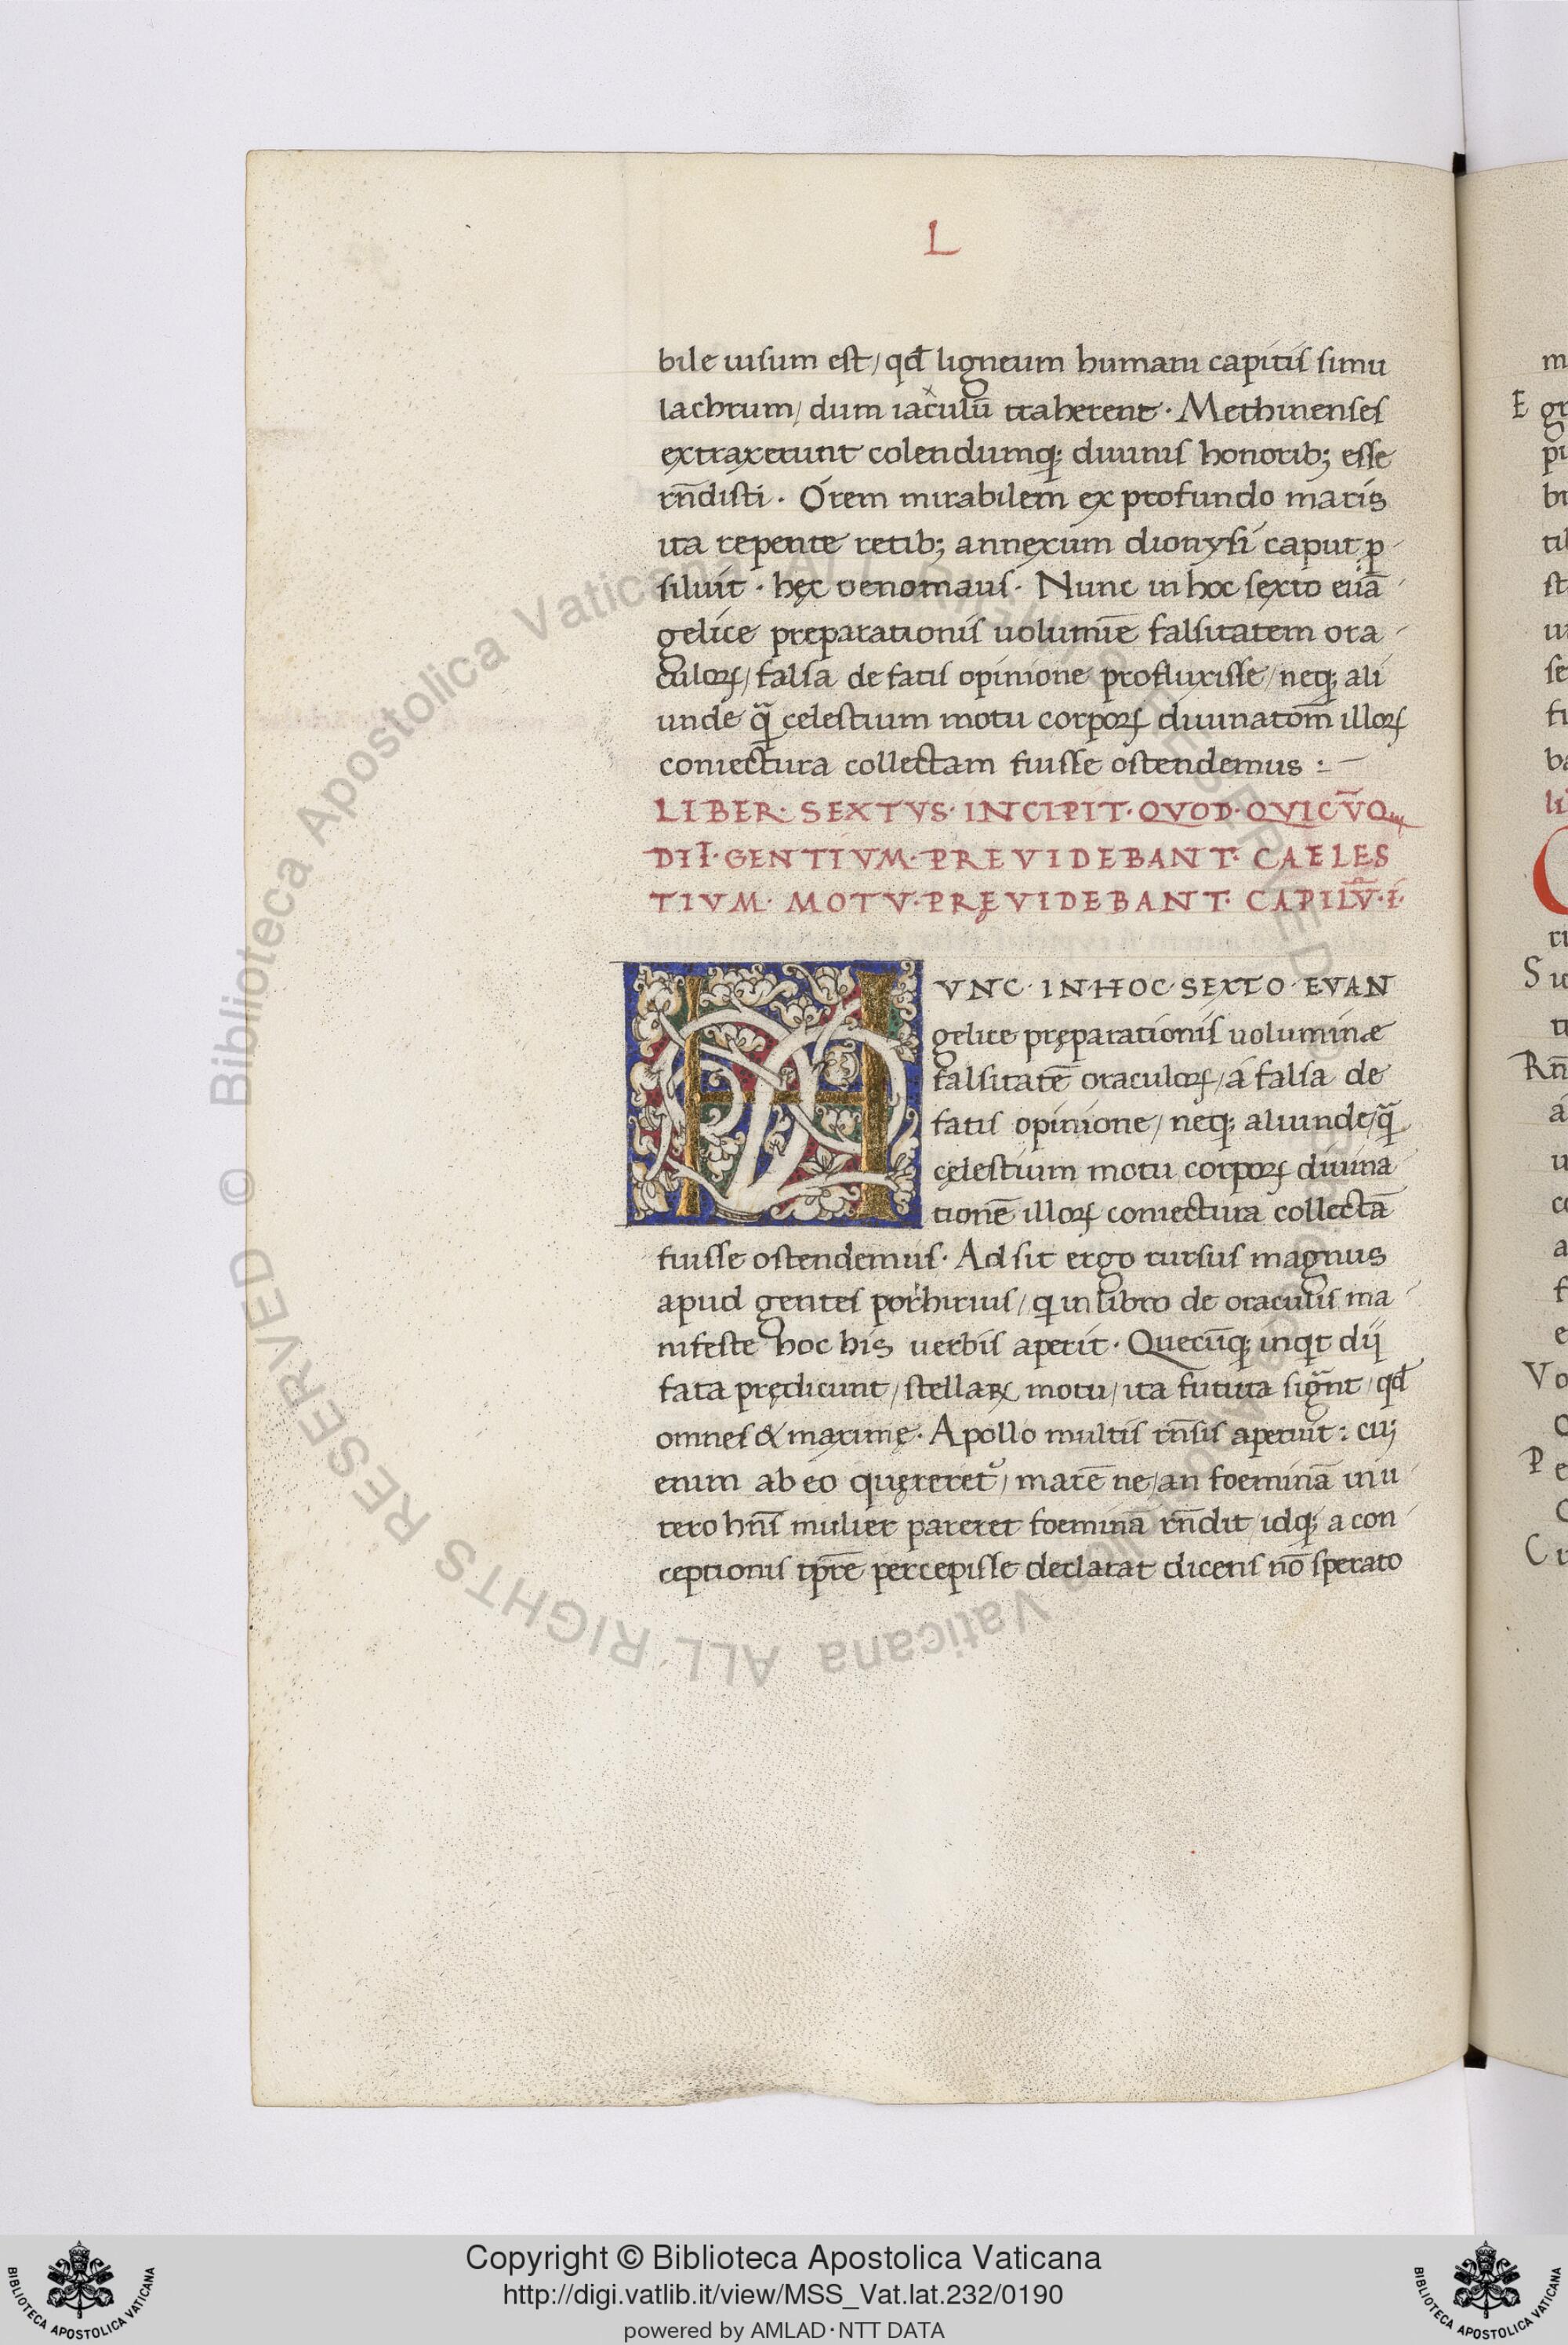 L
bile uisum est / qđ ligneum humani capitis simu
lachrum / dum iaculū traherent · Methinenses
extraxerunt colendumq; diuinis honorib; esse
rn̄disti · Orem mirabilem ex profundo maris
ita repente retib; annexum dionysi caput p̱
siluit · hęc oenomaus · Nunc in hoc sexto euā
gelice preparationis uolumīe falsitatem ora
culoꝝ / falsa de fatis opinione profluxisse / neq; ali
unde q̄ celestium motu corpoꝝ diuinatom̄ illoꝝ
coniectura collectam fuisse ostendemus : –
LIBER · SEXTVS · INCIPIT · QVOD · QVICV̄Q
DII · GENTIVM · PREVIDEBANT · CAELES
TIVM · MOTV · PRĘVIDEBANT · CAPILV̄ · I ·
VNC · IN · HOC · SEXTO · EVAN
gelice pręparationis uoluminæ
falsitatē oraculoꝝ / á falsa de
fatis opinione / neq; aliunde / q̄
cęlestium motu corpoꝝ diuina
tionē illoꝝ coniectura collectā
fuisse ostendemus · Adsit ergo rursus magnus
apud gentes porhirius / q in libro de oraculis ma
nifeste hoc his uerbis aperit · Quecūq; inqt dij
fata prędicunt / stellaꝝ motu / ita futura sig̅nt / qđ
omnes & maxime · Apollo multis rn̄sis aperuit : cuj
enim ab eo quęreret᷑ / marē ne / an foeminā in u
tero hn̄s mulier pareret foeminā rn̄dit / idq; a con
ceptionis tp̄re percepisse declarat dicens nō sperato
m
E gr
© Biblioteca Apostolica Vaticana ALL RIGHTS RESERVED
© Biblioteca Apostolica Vaticana ALL RIGHTS RESERVED
BIBLIOTECA APOSTOLICA VATICANA
Copyright © Biblioteca Apostolica Vaticana
http://digi.vatlib.it/view/MSS_Vat.lat.232/0190
powered by AMLAD·NTT DATA
BIBLIOTECA APOSTOLICA VATICANA